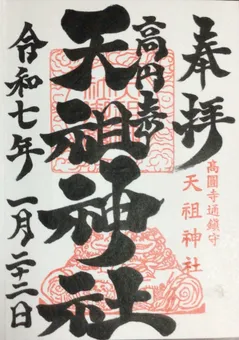 奉拝
高円寺
天祖神社
高圓寺通鎮守
天祖神社
令和七年 一月二十二日